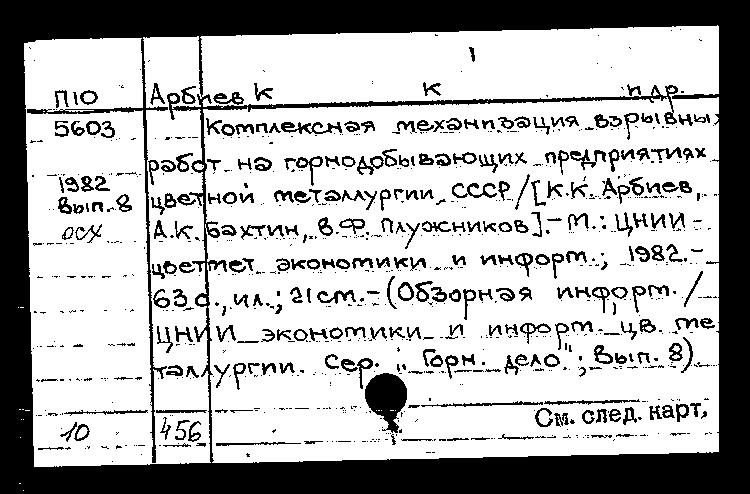 1
П10 Арбиев К К и др.
5603 Комплексная механизация взрывных
работ на горнодобывающих предприятиях
1982 цветной металлургии СССР/[К.К. Арбиев,
Вып. 8
осх А.К. Бахтин, В.Ф. Плужников].- М.: ЦНИИ-
цветмет экономики и информ.; 1982.-
63 с., ил.; 21 см.-(Обзорная информ./
ЦНИИ экономики и информ. цв. ме
таллургии. Сер. "Горн. дело"; Вып. 8).
См. след. карт,
10 456